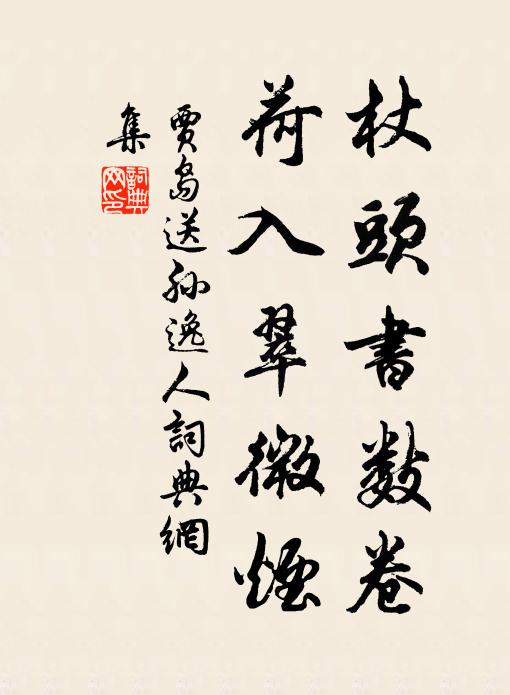 杖頭書數卷
荷入翠微煙
賈島送孫逸人詞典網
集
詞典
网印